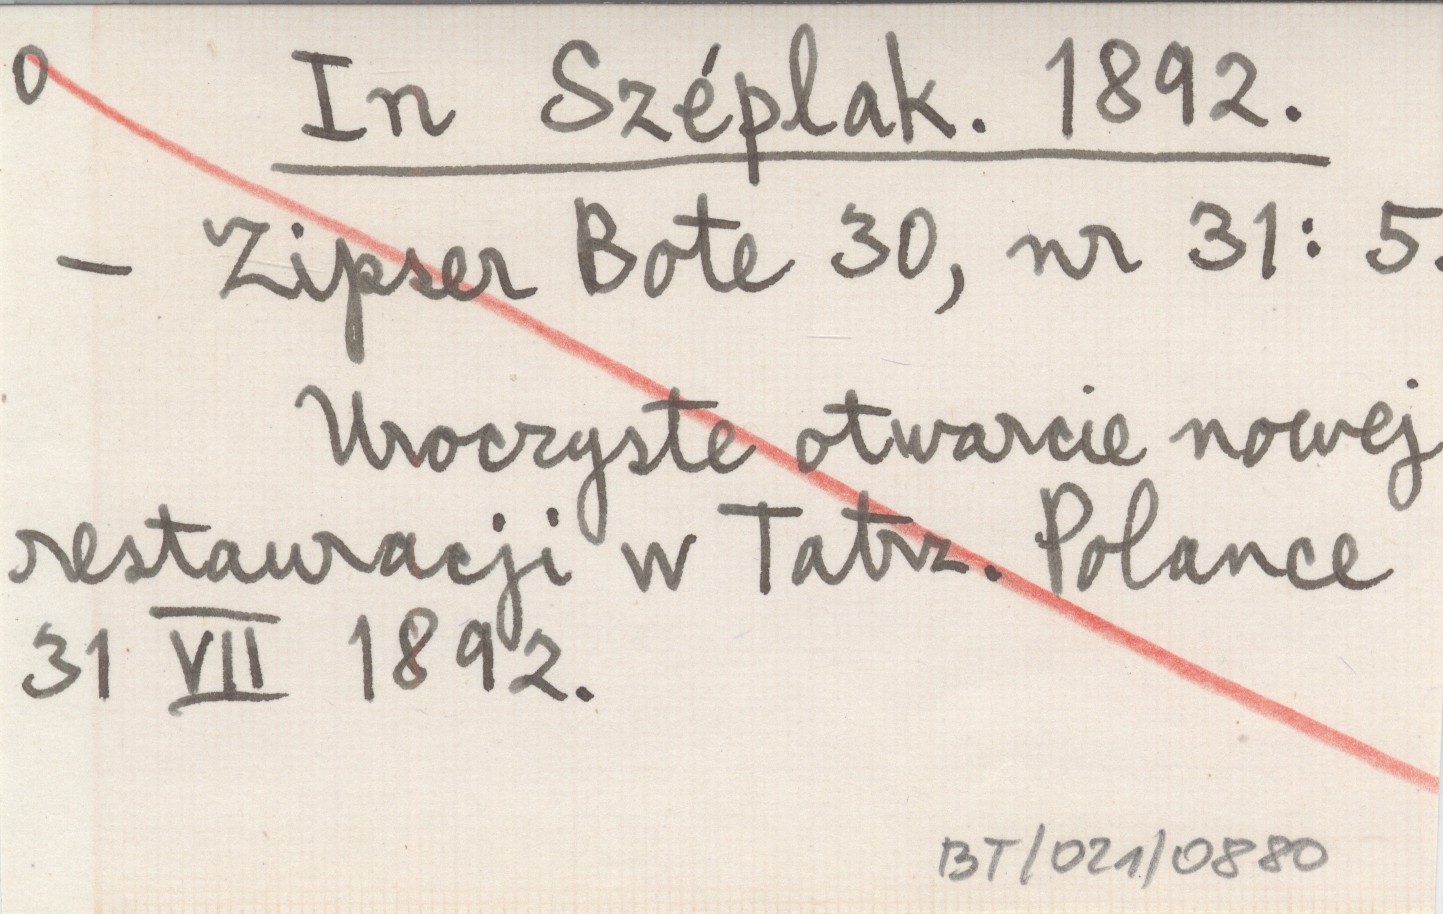 0 In Széplak. 1892.
– Zipser Bote 30, nr 31: 5.
Uroczyste otwarcie nowej
restauracji w Tatrz. Polance
31 VII 1892.
BT/021/0880